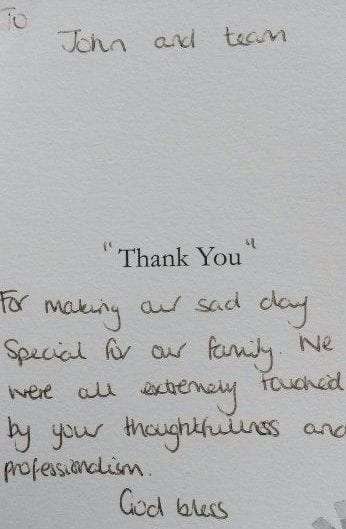 To
John and team
"Thank You"
For making our sad day
Special for our family. We
were all extremely touched
by your thoughtfullness and
professionalism.
God bless